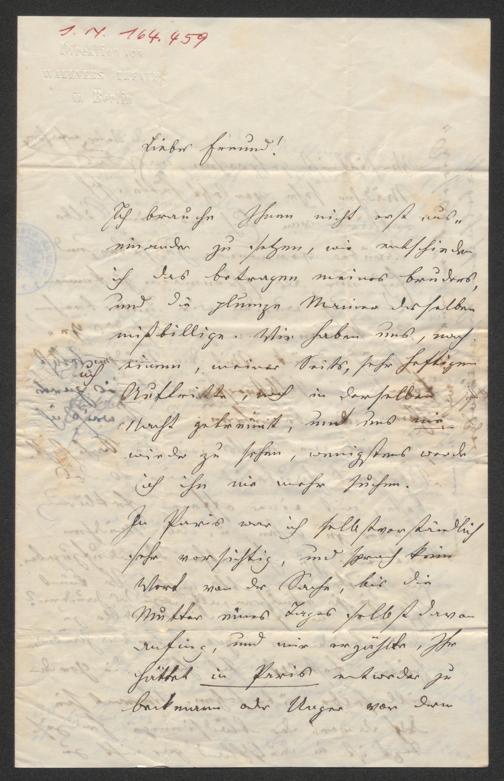 I. N. 164.459
Liebes Freund!
Ich brauche Ihnen nicht erst aus„
einander zu setzen, wie entschieden
ich das betragen meines bruders,
und die plumpe Manier desselben
mißbillige. Wir haben uns, nach
einem, meiner Seits, sehr heftigen
Auftritte, noch in derselben
Nacht getrennt, und uns nie
wieder zu sehen, wenigstens werde
ich ihn nie mehr suchen.
In Paris war ich selbstverständlich
sehr vorsichtig, und sprach kein
Wort von der Sache, bis die
Mutter eines Tages selbst davon
anfing, und mir erzählte, Ihr
hättet in Paris entweder zu
beckmann oder Unger von dem